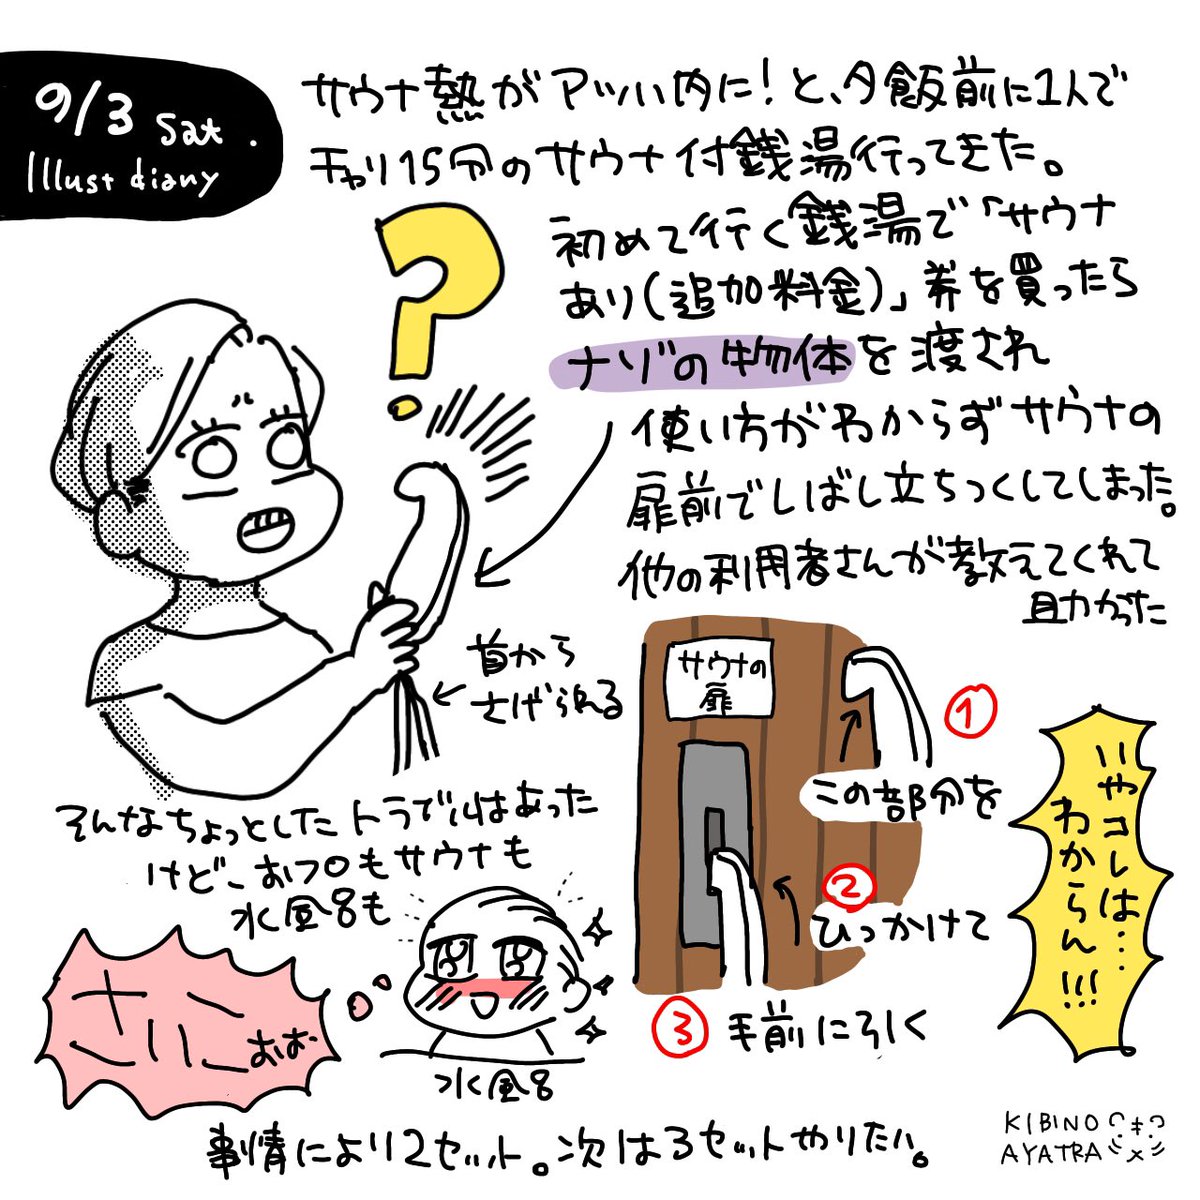 9/3 Sat.
Illust diary
サウナ熱がアツい内に!と、夕飯前に1人で
チャリ15分のサウナ付銭湯行ってきた。
初めて行く銭湯で「サウナ
あり(追加料金)」券を買ったら
ナゾの物体を渡され
使い方がわからずサウナの
扉前でしばし立ちつくしてしまった。
他の利用者さんが教えてくれて
助かった
?
首から
さげられる
サウナの
扉
①
この部分を
②
ひっかけて
③手前に引く
いやコレは…
わからん!!!
そんなちょっとしたトラブルはあった
けど、おフロもサウナも
水風呂も
さいこー
おお…
水風呂
事情により2セット。次は3セットやりたい。
KIBINO
AYATRA